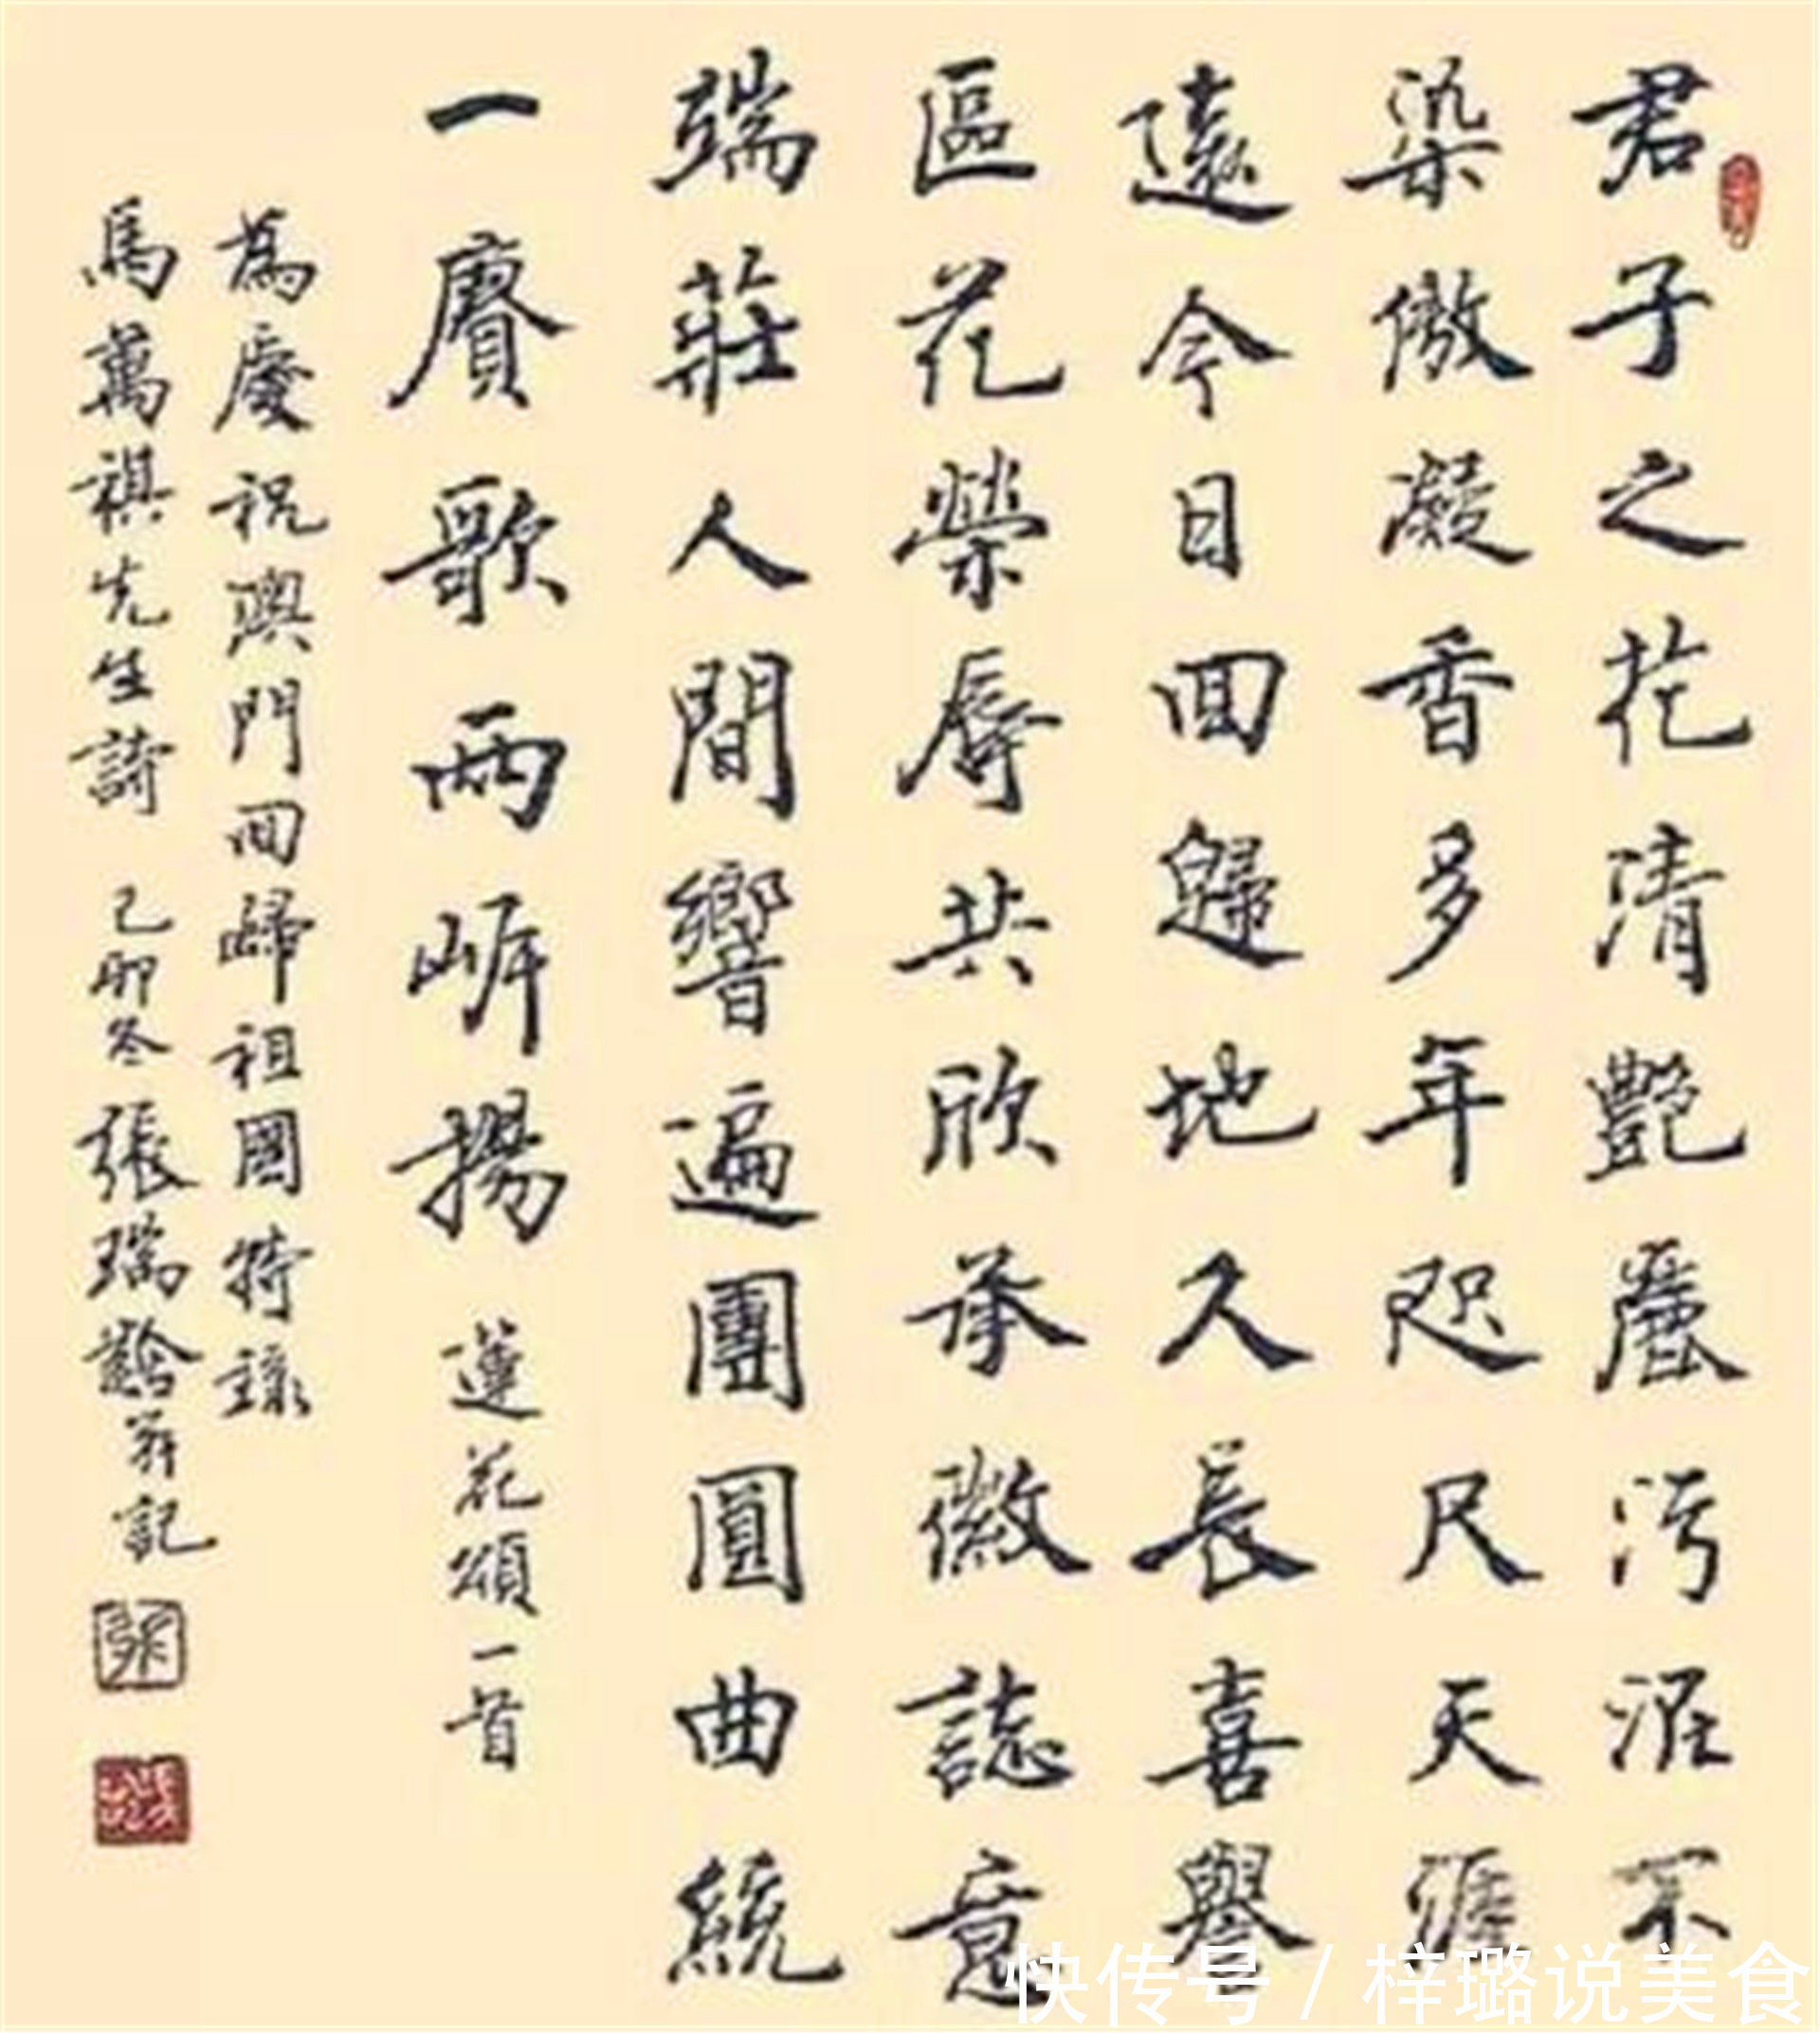 君子之花清艷麗污泥不
染傲凝香多年咫尺天涯
遠今日回歸地久長喜譽
區花榮辱共欣承徽誌意
端莊人間響遍團圓曲統
一賡歌兩岸揚 蓮花頌一首
為慶祝澳門回歸祖國特錄
馬萬祺先生詩 己卯冬張瑞齡并記
張
快传号/梓璐说美食